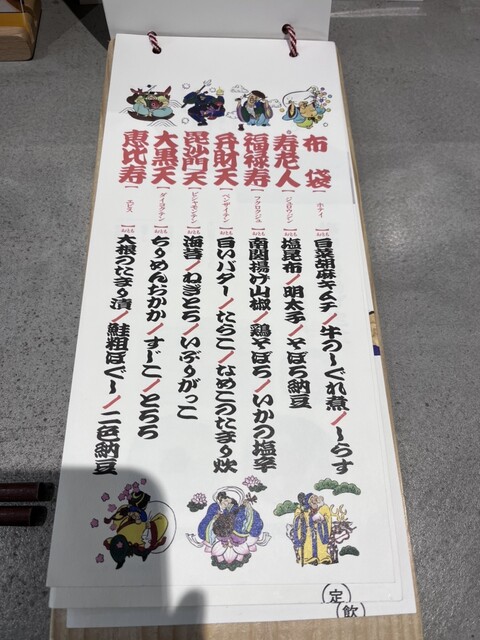 布袋【ホテイ】【おとも】白菜胡麻キムチ/牛のしぐれ煮/しらす
寿老人【ジュロウジン】【おとも】塩昆布/明太子/そぼろ納豆
福禄寿【フクロクジュ】【おとも】南関揚げ山椒/鶏そぼろ/いかの塩辛
弁財天【ベンザイテン】【おとも】白いバター/たらこ/なめこのたまり炊
毘沙門天【ビシャモンテン】【おとも】海苔/ねぎとろ/いぶりがっこ
大黒天【ダイコクテン】【おとも】ちりめんおかか/すじこ/とろろ
恵比寿【エビス】【おとも】大根のたまり漬/鮭粗ほぐし/二色納豆
定
飲